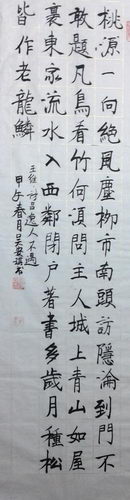 桃源一向絕風塵柳市南頭訪隱淪到門不
敢題凡鳥看竹何須問主人城上青山如屋
裏東家流水入西鄰閉户著書多歲月種松
皆作老龍鱗
王維 訪呂逸人不遇
甲午春月吳